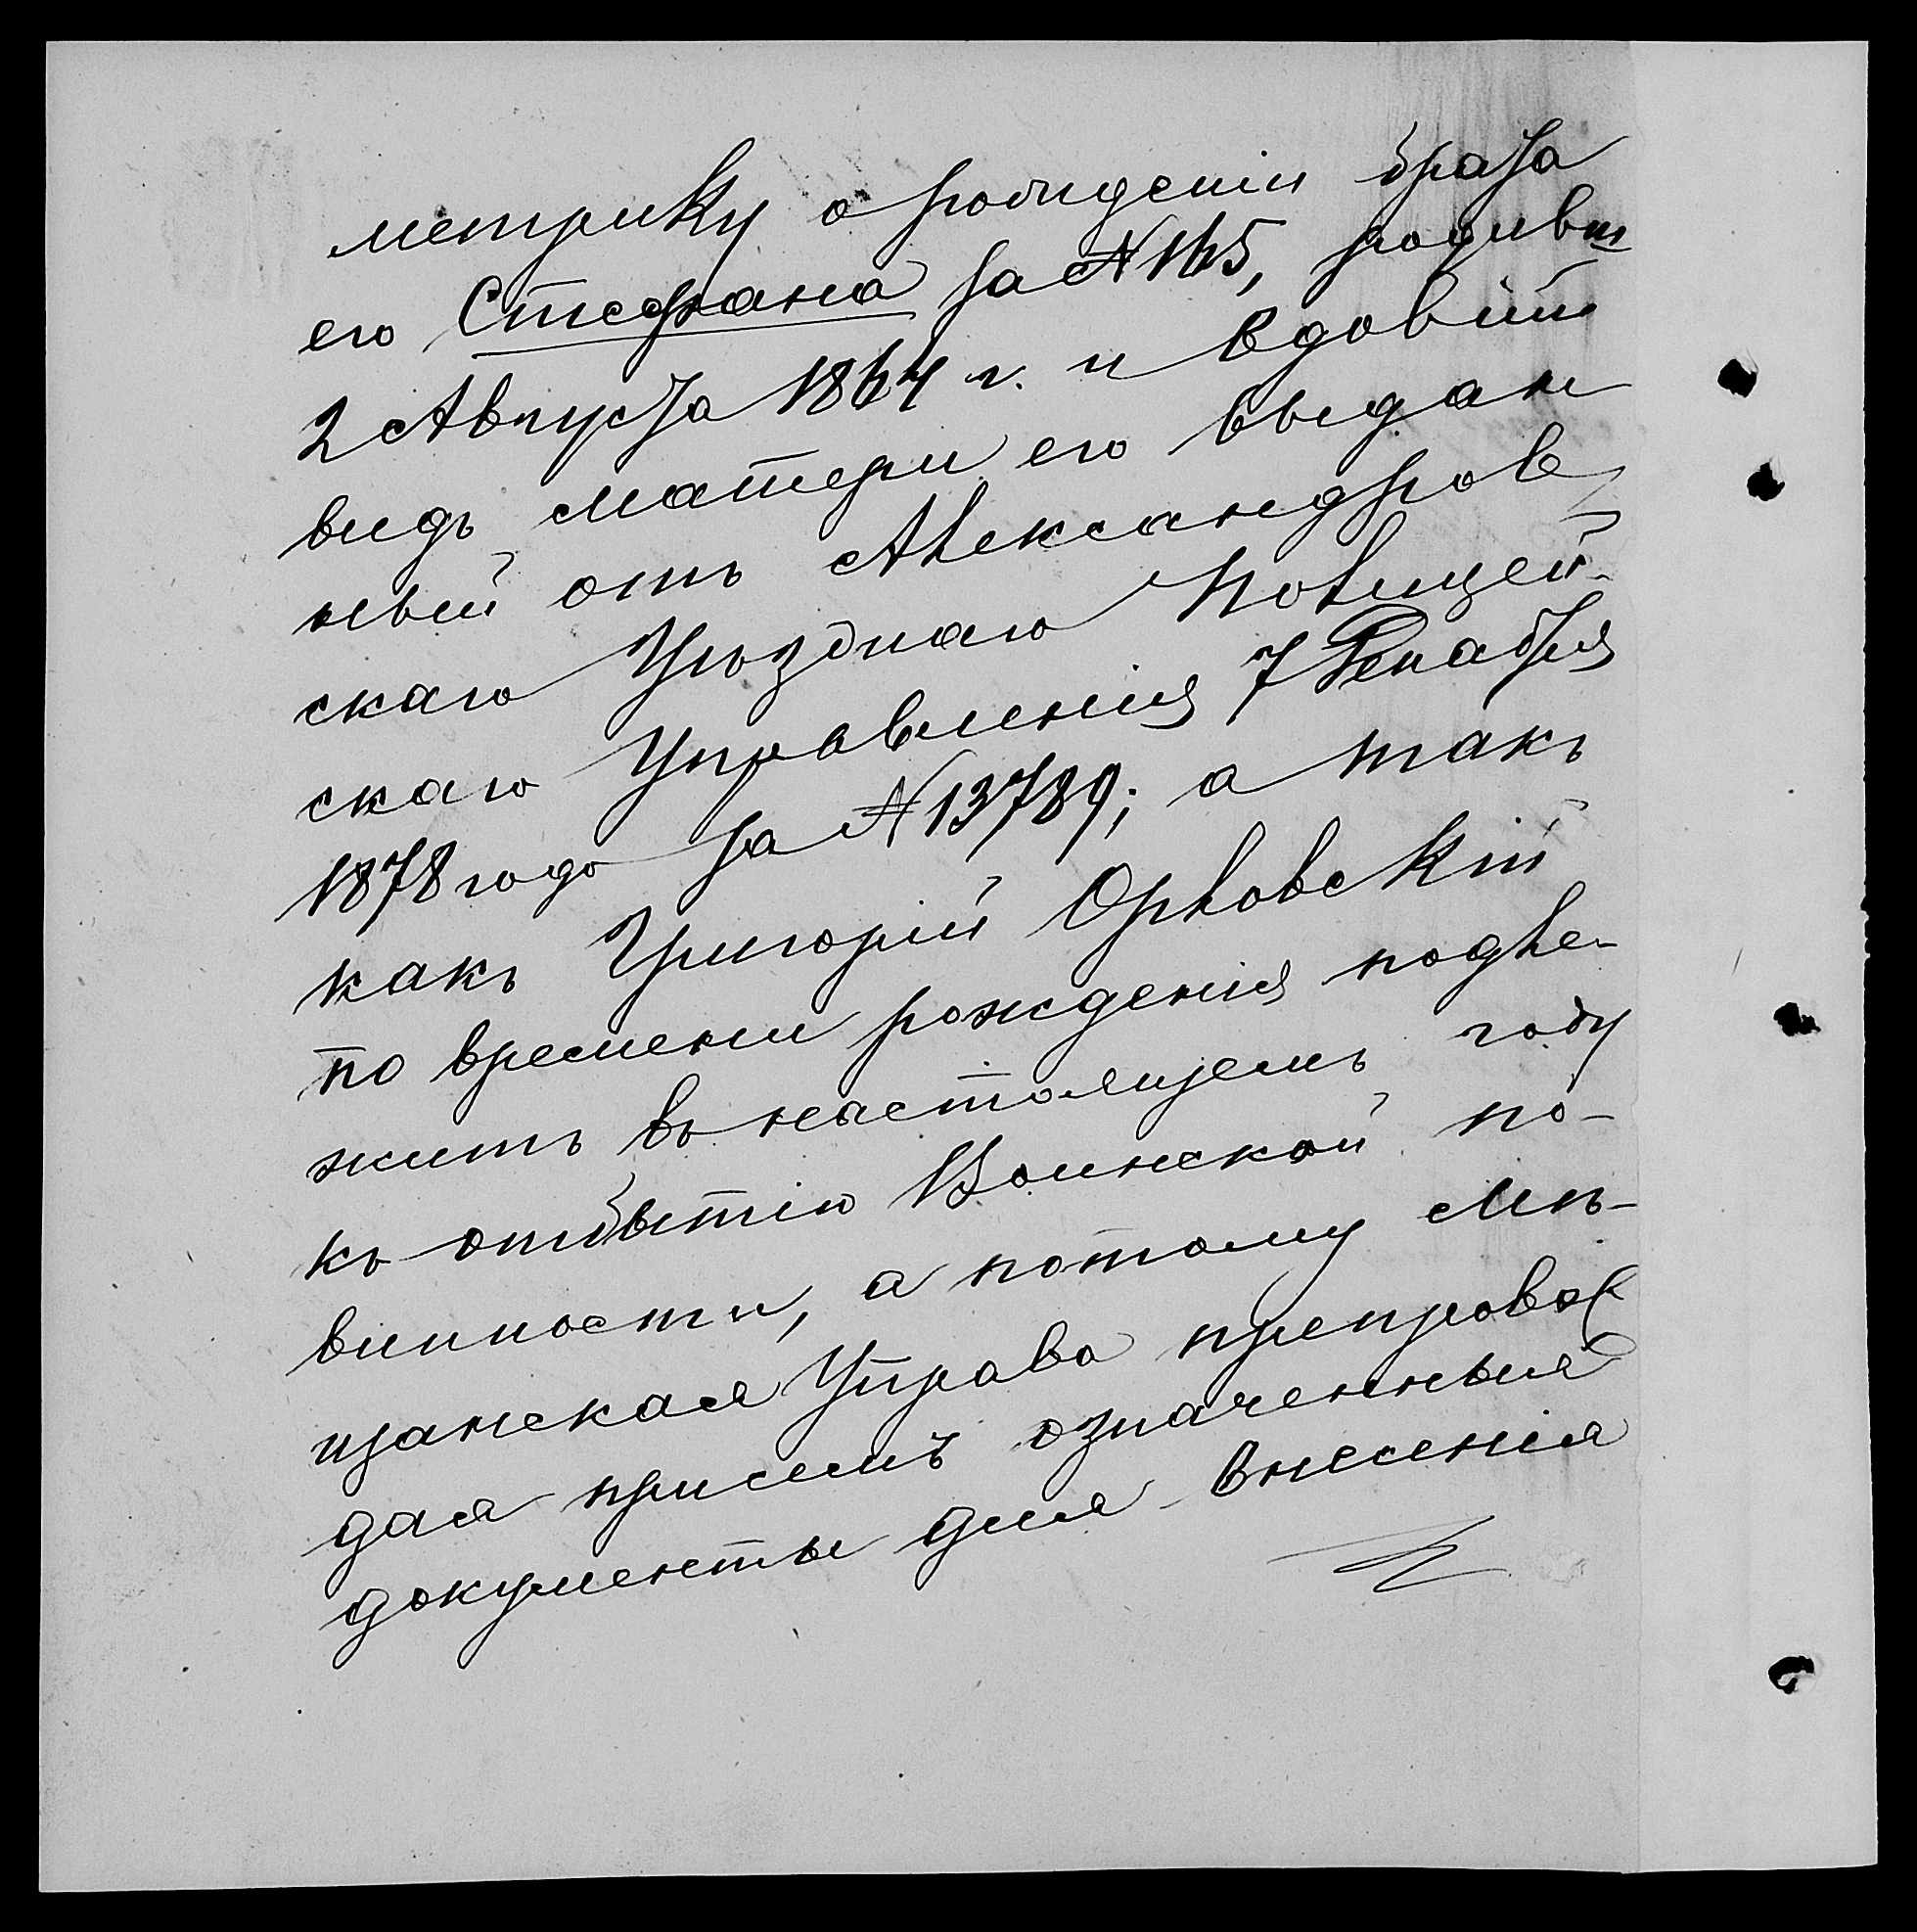 метрику о рожденіи брата
его Стефана за № 165, родивш
2 Августа 1864 г. и вдовій
видъ матери его выдан
ный отъ Александров
скаго Уѣзднаго Полицей-
скаго Управленія 7 Декабря
1878 года за № 13789; а такъ
какъ Григорій Орловскій
по времени рожденія подле-
житъ въ настоящемъ году
къ отбытію Воинской по-
винности, а потому Мѣ-
щанская Управа препровож
дая присемъ означенныя
документы для внесенія